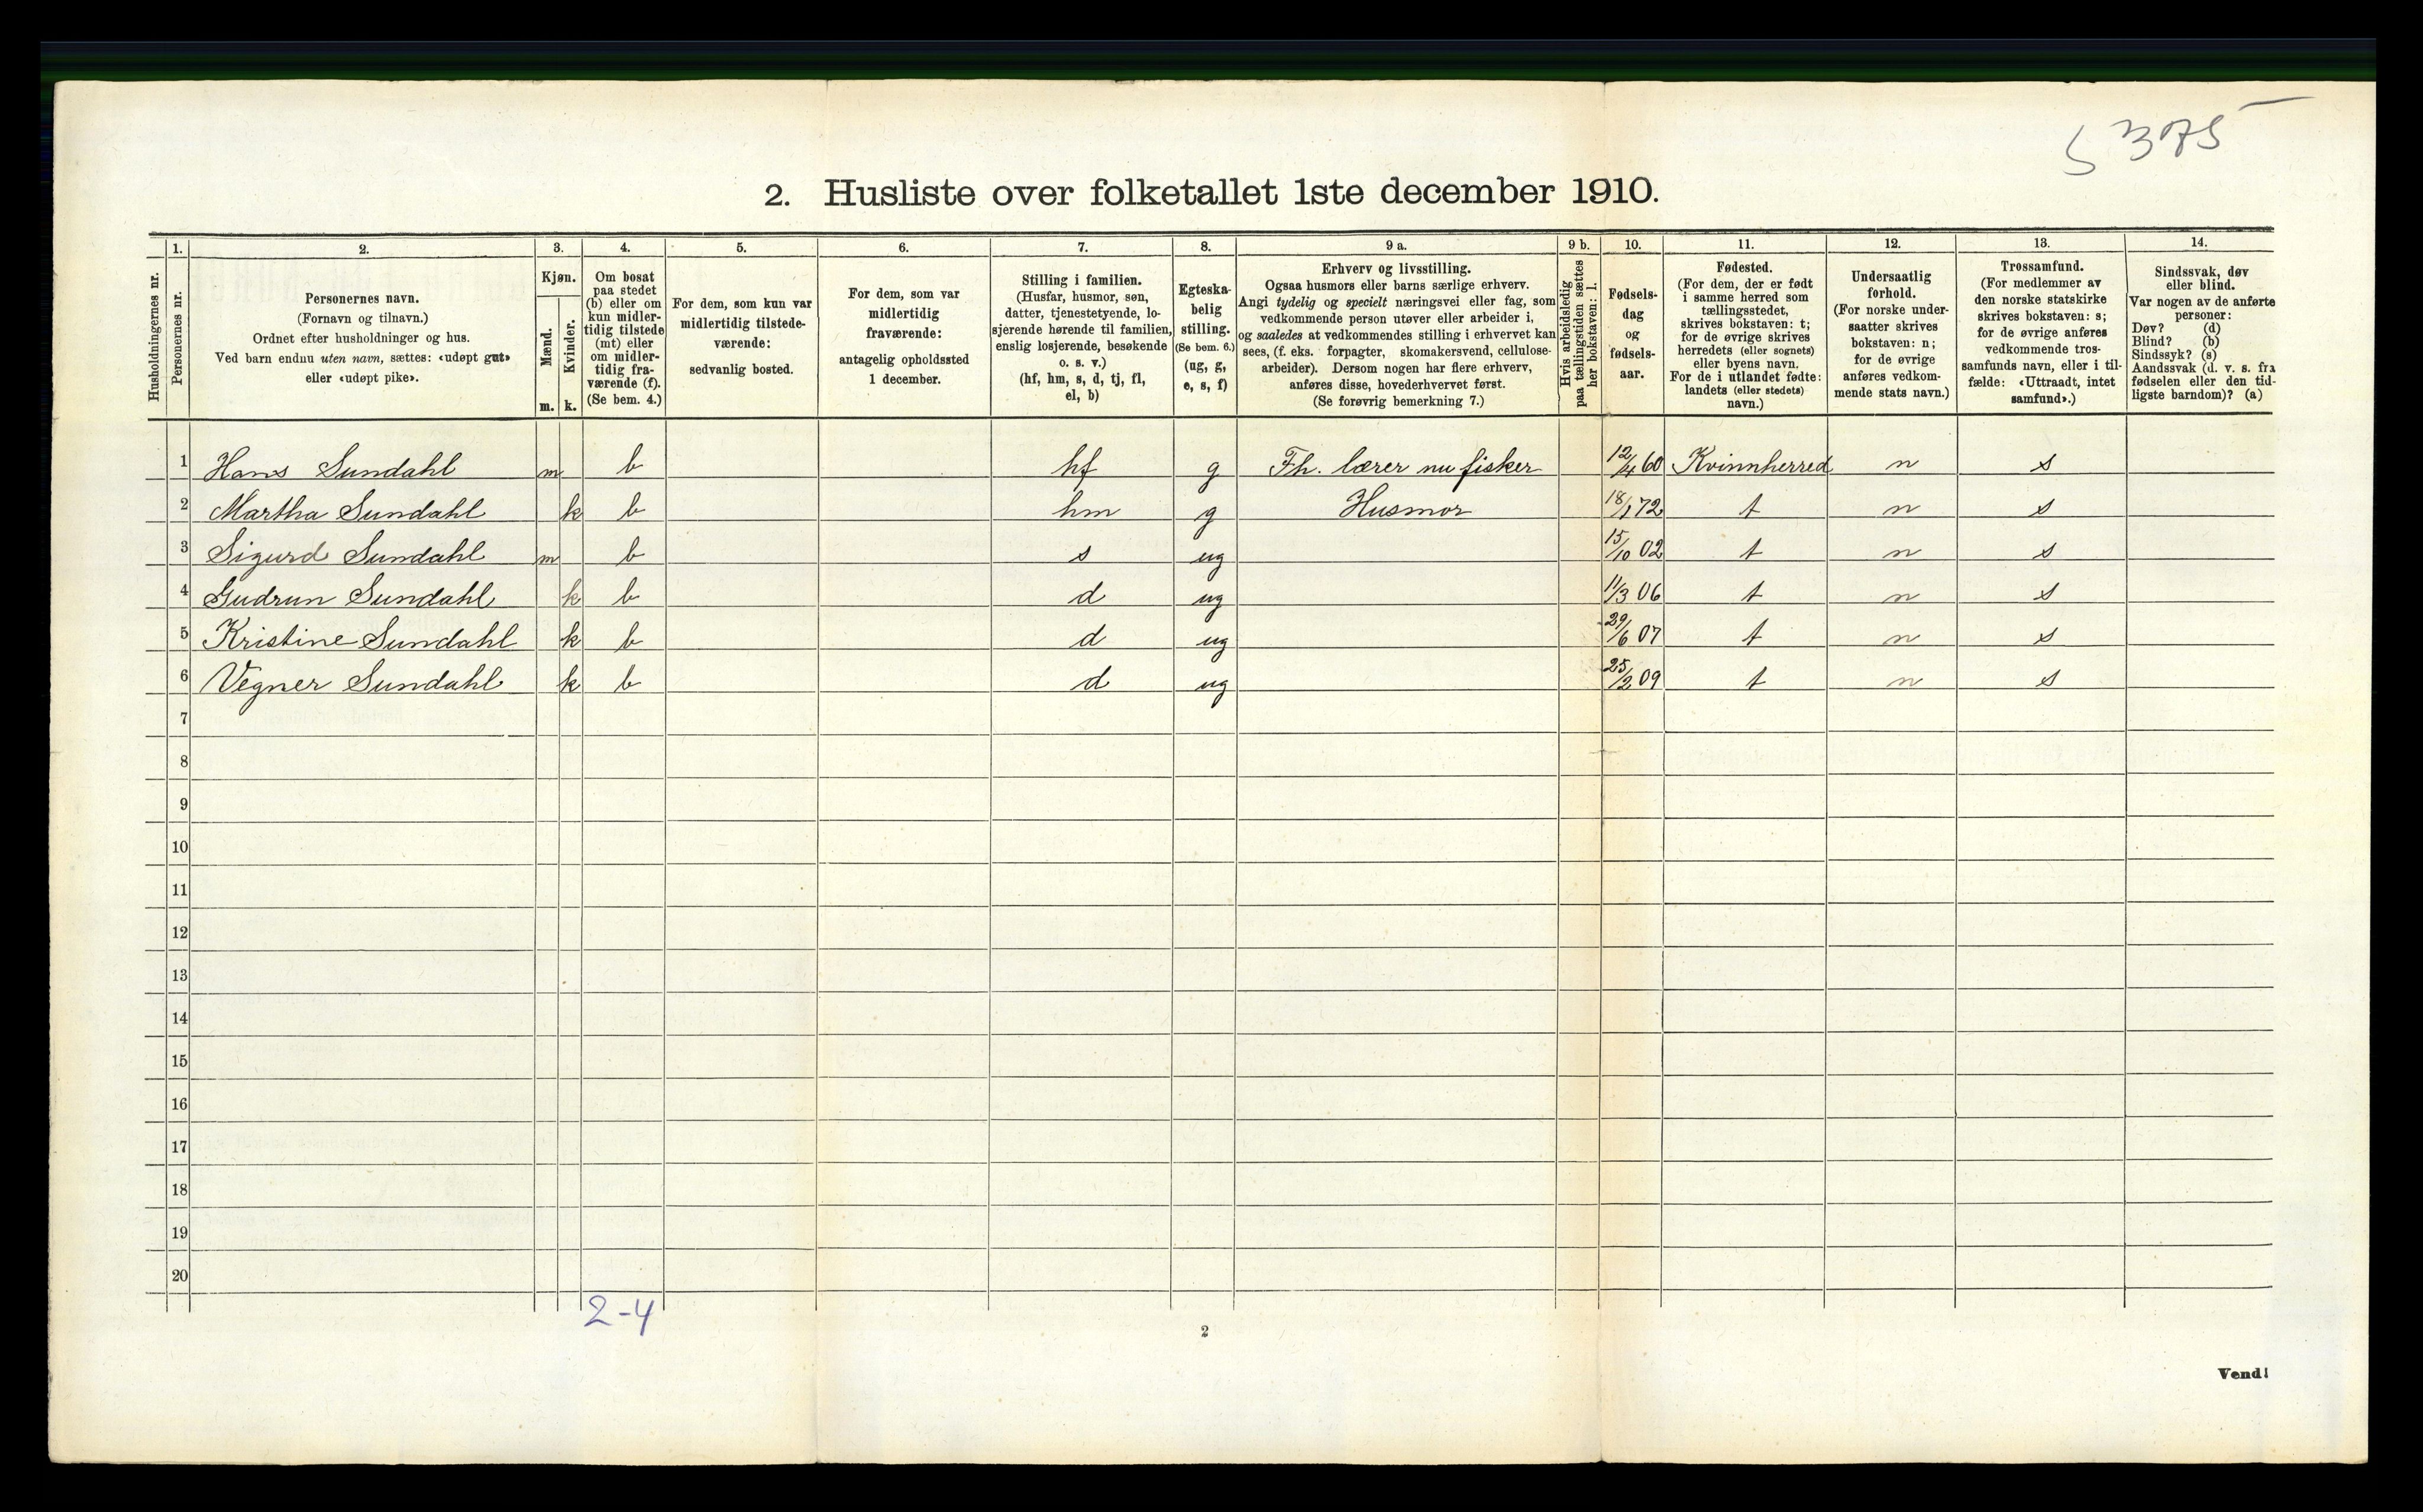 5375
2. Husliste over folketallet 1ste december 1910.
Husholdningernes nr.
1.
Personernes nr.
2.
Personernes navn.
(Fornavn og tilnavn.)
Ordnet efter husholdninger og hus.
Ved barn endnu uten navn, sættes: «udøpt gut»
eller «udøpt pike».
3.
Kjøn.
Mænd.
m.
Kvinder.
k.
4.
Om bosat
paa stedet
(b) eller om
kun midler-
tidig tilstede
(mt) eller
om midler-
tidig fra-
værende (f).
(Se bem. 4.)
5.
For dem, som kun var
midlertidig tilstede-
værende:
sedvanlig bosted.
6.
For dem, som var
midlertidig
fraværende:
antagelig opholdssted
1 december.
7.
Stilling i familien.
(Husfar, husmor, søn,
datter, tjenestetyende, lo-
sjerende hørende til familien,
enslig losjerende, besøkende
o. s. v.)
(hf, hm, s, d, tj, fl,
el, b)
8.
Egteska-
belig
stilling.
(Se bem. 6.)
(ug, g,
e, s, f)
9 a.
Erhverv og livsstilling.
Ogsaa husmors eller barns særlige erhverv.
Angi tydelig og specielt næringsvei eller fag, som
vedkommende person utøver eller arbeider i,
og saaledes at vedkommendes stilling i erhvervet kan
sees, (f. eks. forpagter, skomakersvend, cellulose-
arbeider). Dersom nogen har flere erhverv,
anføres disse, hovederhvervet først.
(Se forøvrig bemerkning 7.)
9 b.
Hvis arbeidsledig
paa tællingstiden sættes
her bokstaven: l.
10.
Fødsels-
dag
og
fødsels-
aar.
11.
Fødested.
(For dem, der er født
i samme herred som
tællingsstedet,
skrives bokstaven: t;
for de øvrige skrives
herredets (eller sognets)
eller byens navn.
For de i utlandet fødte:
landets (eller stedets)
navn.)
12.
Undersaatlig
forhold.
(For norske under-
saatter skrives
bokstaven: n;
for de øvrige
anføres vedkom-
mende stats navn.)
13.
Trossamfund.
(For medlemmer av
den norske statskirke
skrives bokstaven: s;
for de øvrige anføres
vedkommende tros-
samfunds navn, eller i til-
fælde: «Uttraadt, intet
samfund».)
14.
Sindssvak, døv
eller blind.
Var nogen av de anførte
personer:
Døv? (d)
Blind? (b)
Sindssyk? (s)
Aandssvak (d. v. s. fra
fødselen eller den tid-
ligste barndom)? (a)
1 Hans Sundahl m b hf g Fh. lærer nu fisker 12/4 60 Kvinnherred n s
2 Martha Sundahl k b hm g Husmor 18/1 72 t n s
3 Sigurd Sundahl m b s ug 15/10 02 t n s
4 Gudrun Sundahl k b d ug 11/3 06 t n s
5 Kristine Sundahl k b d ug 29/6 07 t n s
6 Vegner Sundahl k b d ug 25/2 09 t n s
7
8
9
10
11
12
13
14
15
16
17
18
19
20
2-4
2
Vend!